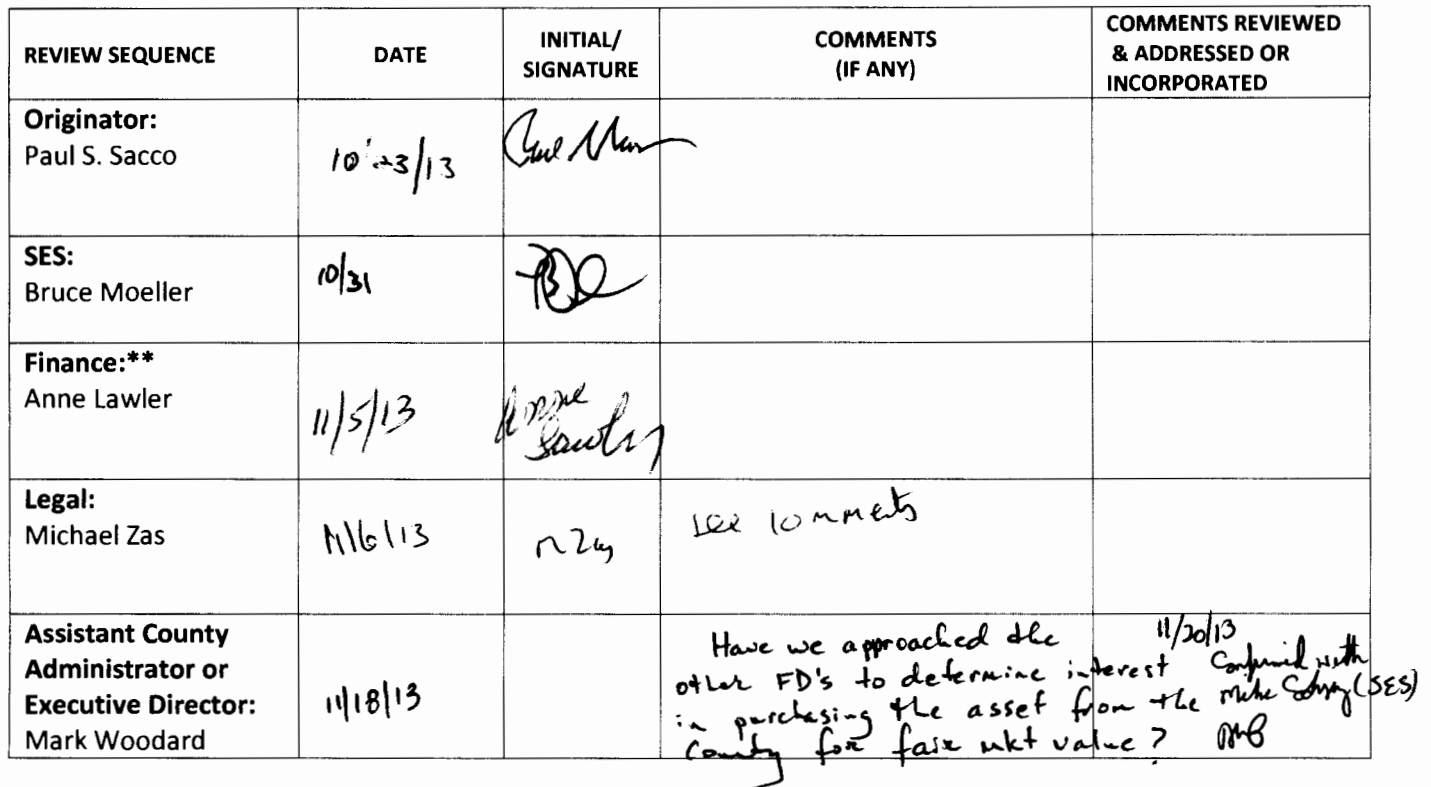 REVIEW SEQUENCE DATE INITIAL/ SIGNATURE COMMENTS (IF ANY) COMMENTS REVIEWED & ADDRESSED OR INCORPORATED
Originator:
Paul S. Sacco
10/23/13
SES:
Bruce Moeller
10/31
Finance:**
Anne Lawler
11/5/13
Anne
Lawler
Legal:
Michael Zas
11/6/13
MZas
see comments
Assistant County
Administrator or
Executive Director:
Mark Woodard
11/18/13
Have we approached the
other FD's to determine interest
in purchasing the asset from the
County for fair mkt value?
11/20/13
Confirmed with
Mike (SES)